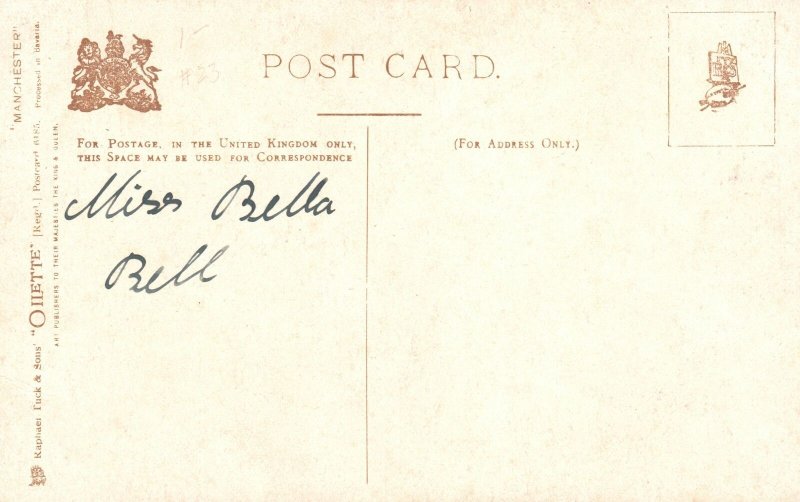 1-
#23
POST CARD.
FOR POSTAGE, IN THE UNITED KINGDOM ONLY,
THIS SPACE MAY BE USED FOR CORRESPONDENCE
(FOR ADDRESS ONLY.)
Miss Bella
Bell
"MANCHESTER"
Raphael Tuck & Sons' "OILETTE" [Regd.] Postcard 6185. Processed in Bavaria.
ART PUBLISHERS TO THEIR MAJESTIES THE KING & QUEEN.